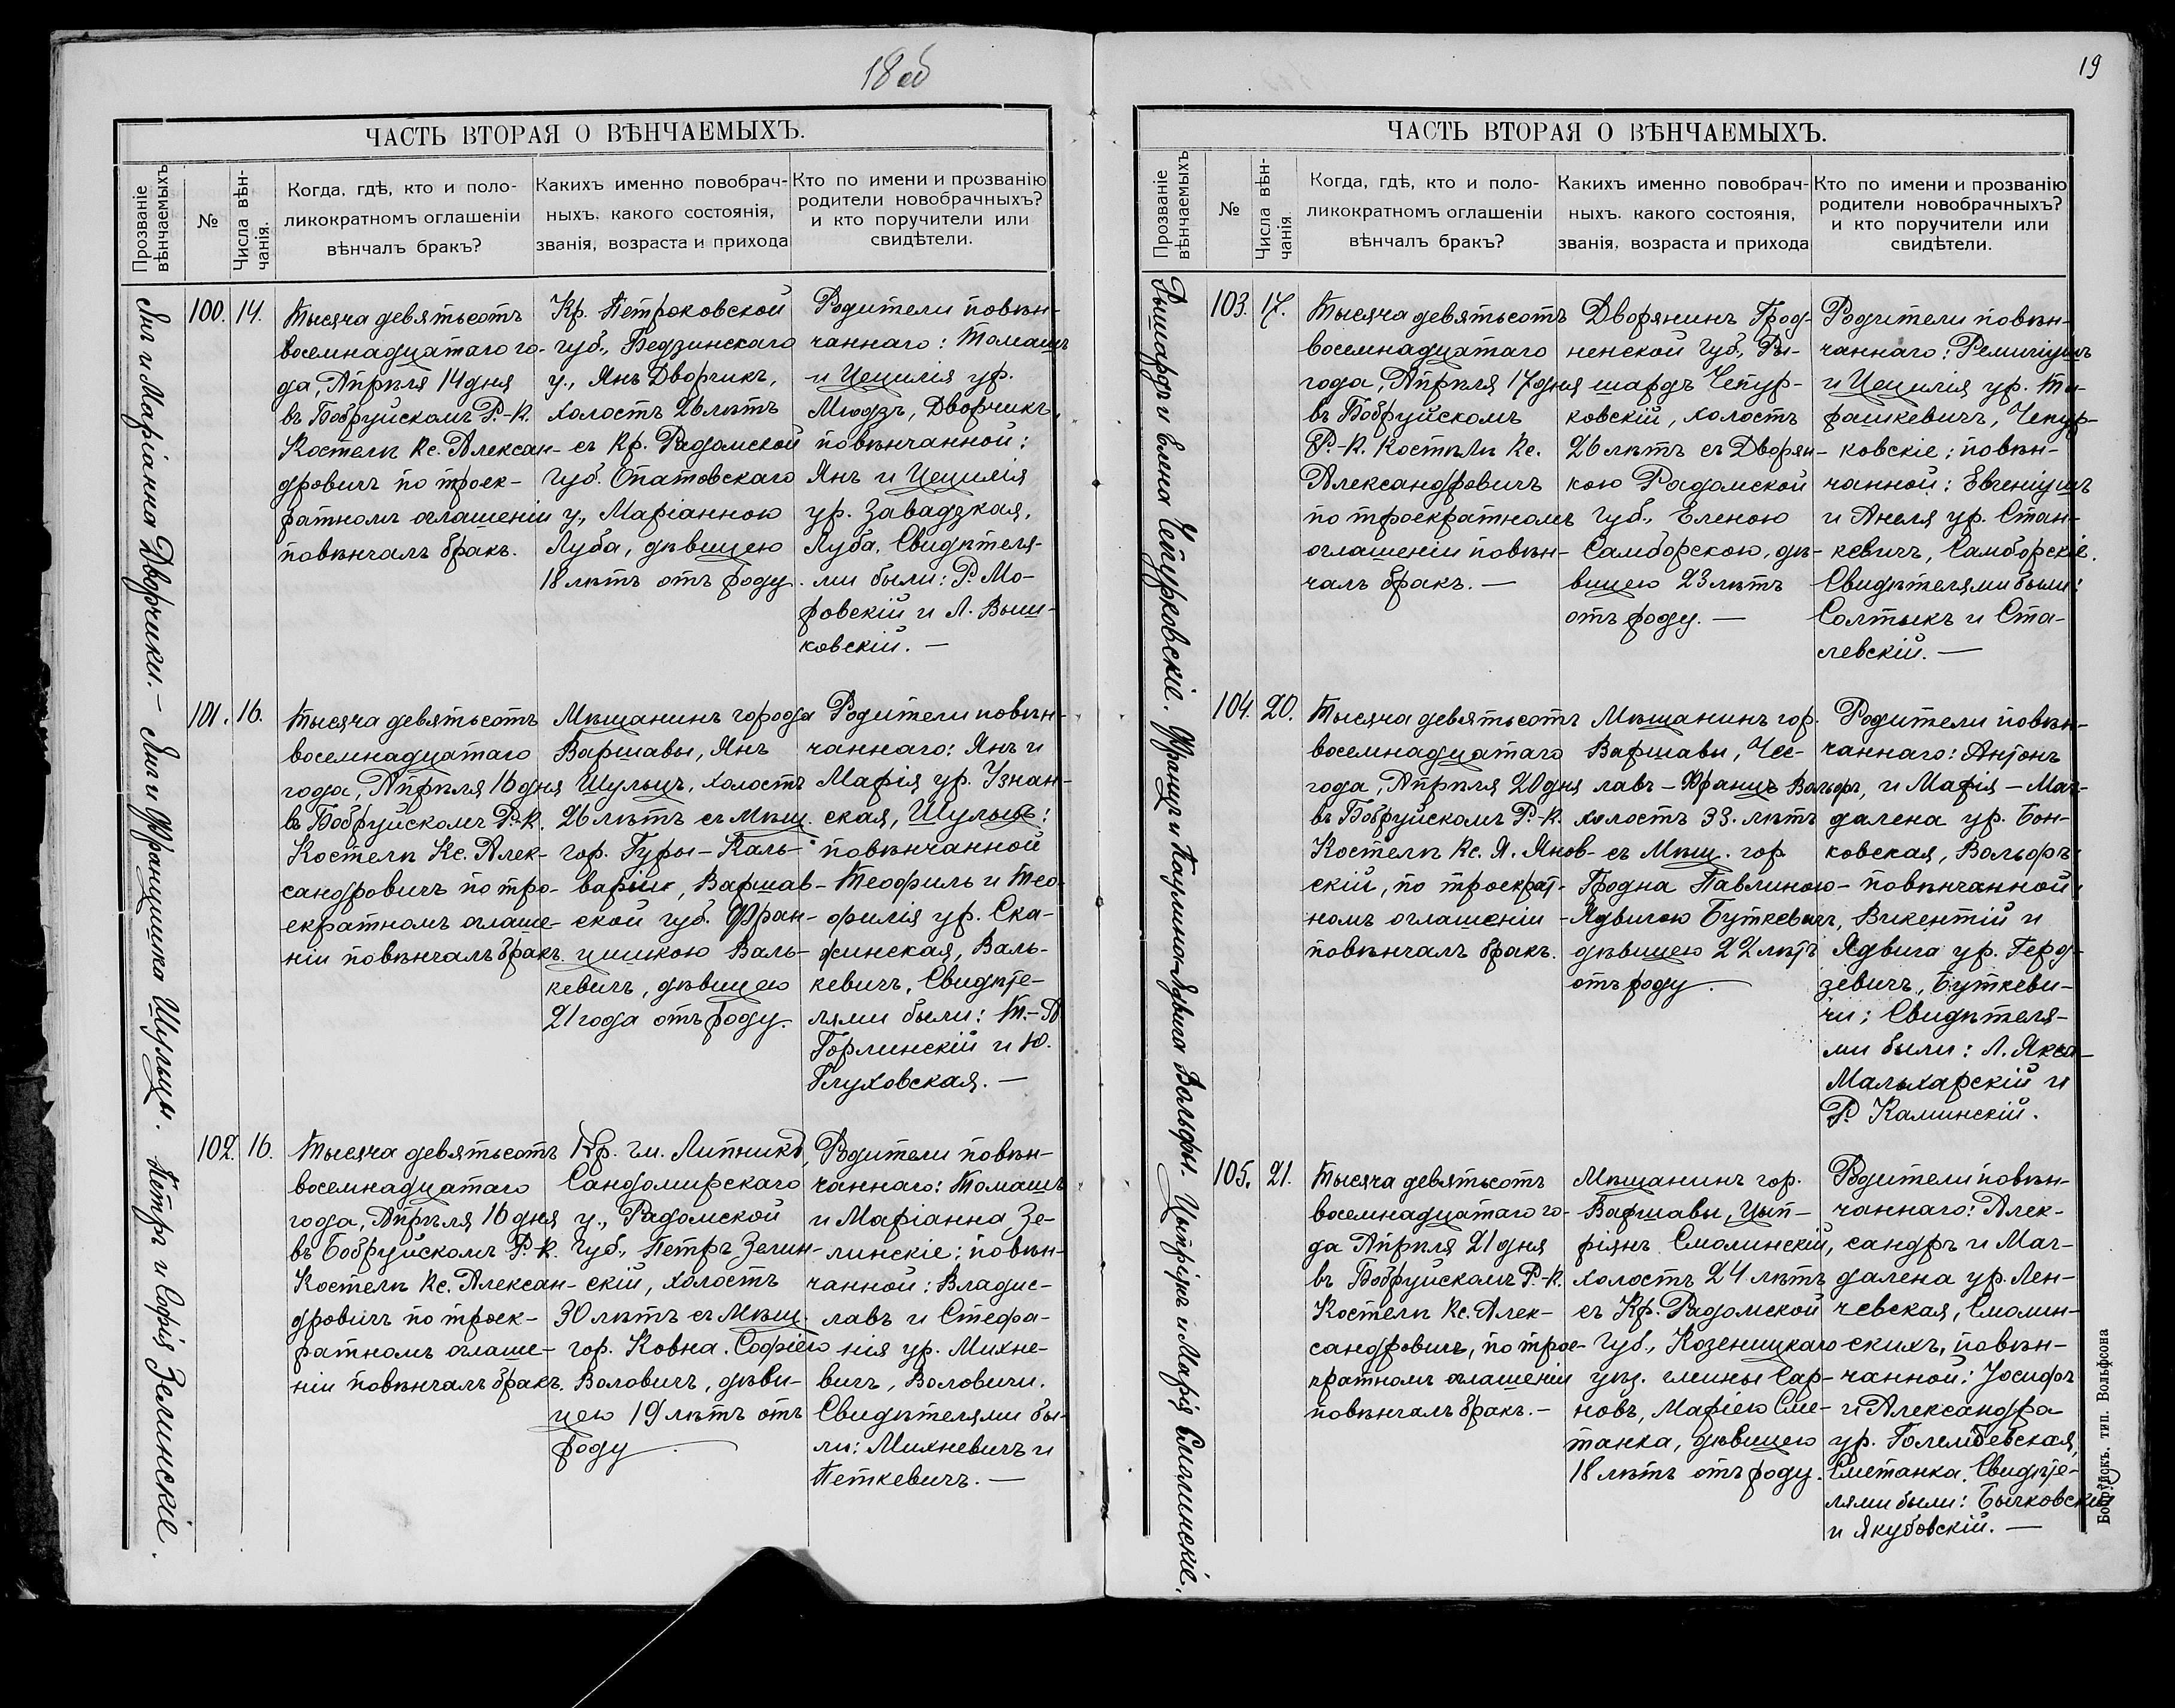 18 об
ЧАСТЬ ВТОРАЯ О ВѢНЧАЕМЫХЪ.
Прозваніе
вѣнчаемыхъ
№
Числа вѣн-
чанія.
Когда, гдѣ, кто и поло-
ликократномъ оглашеніи
вѣнчалъ бракъ?
Какихъ именно повобрач-
ныхъ. какого состоянія,
званія, возраста и прихода
Кто по имени и прозванію
родители новобрачныхъ?
и кто поручители или
свидѣтели.
Янъ и Маріанна Дворчики. –
100. 14.
Тысяча девятьсотъ
восемнадцатаго го-
да, Апрѣля 14 дня
въ Бобруйскомъ Р.-К.
Костелѣ Кс. Алексан-
дровичъ по троек-
ратномъ оглашеніи
повѣнчалъ бракъ.
Кр. Петроковской
губ., Бедзинскаго
у., Янъ Дворчикъ,
холостъ 26 лѣтъ
съ Кр. Радомской
губ. Опатовскаго
у., Маріанною
Луба, дѣвицею
18 лѣтъ отъ роду.
Родители повѣн-
чаннаго: Томашъ
и Цецилія ур.
Мюдзъ, Дворчикъ,
повѣнчанной:
Янъ и Цецилія
ур. Завадзкая,
Луба. Свидѣтеля-
ми были: Р. Мо-
ровскій и Л. Выш-
ковскій. –
Янъ и Францишка Шульцы.
101. 16.
Тысяча девятьсотъ
восемнадцатаго
года, Апрѣля 16 дня
въ Бобруйскомъ Р.-К.
Костелѣ Кс. Алек-
сандровичъ по тро-
екратномъ оглаше-
ніи повѣнчалъ бракъ.
Мѣщанинъ города
Варшавы, Янъ
Шульцъ, холостъ
26 лѣтъ съ Мѣщ.
гор. Гуры-Каль-
варіи, Варшав-
ской губ. Фран-
цишкою Валь-
кевичъ, дѣвицею
21 года отъ роду.
Родители повѣн-
чаннаго: Янъ и
Марія ур. Узнан-
ская, Шульцъ:
повѣнчанной
Теофиль и Тео-
филія ур. Ска-
жинская, Валь-
кевичъ, Свидѣте-
лями были: Т.-
Горлинскій и Ю.
Глуховская. –
Петръ и Софія Зелинскіе.
102. 16.
Тысяча девятьсотъ
восемнадцатаго
года, Апрѣля 16 дня
въ Бобруйскомъ Р.-К.
Костелѣ Кс. Алексан-
дровичъ по троек-
ратномъ оглаше-
ніи повѣнчалъ бракъ.
Кр. гм. Липникъ,
Сандомирскаго
у., Радомской
губ., Петръ Зелин-
скій, холостъ
30 лѣтъ съ Мѣщ.
гор. Ковна. Софіею
Воловичъ, дѣви-
цею 19 лѣтъ отъ
роду.
Родители повѣн-
чаннаго: Томашъ
и Маріанна Зе-
линскіе; повѣн-
чанной: Владис-
лавъ и Стефа-
нія ур. Михне-
вичъ, Воловичи.
Свидѣтелями бы-
ли: Михневичъ и
Петкевичъ. –
19
ЧАСТЬ ВТОРАЯ О ВѢНЧАЕМЫХЪ.
Прозваніе
вѣнчаемыхъ
№
Числа вѣн-
чанія.
Когда, гдѣ, кто и поло-
ликократномъ оглашеніи
вѣнчалъ бракъ?
Какихъ именно повобрач-
ныхъ. какого состоянія,
званія, возраста и прихода
Кто по имени и прозванію
родители новобрачныхъ?
и кто поручители или
свидѣтели.
Рышардъ и Елена Чепурковскіе.
103. 17.
Тысяча девятьсотъ
восемнадцатаго
года, Апрѣля 17 дня
въ Бобруйскомъ
Р.-К. Костѣлѣ Кс.
Александровичъ
по троекратномъ
оглашеніи повѣн-
чалъ бракъ. –
Дворянинъ Грод-
ненской губ., Ры-
шардъ Чепур-
ковскій, холостъ
26 лѣтъ съ Дворян-
кою Радомской
губ., Еленою
Самборскою, дѣ-
вицею 23 лѣтъ
отъ роду. –
Родители повѣн-
чаннаго: Ремигіушъ
и Цецилія ур. То-
рашкевичъ, Чепур-
ковскіе; повѣн-
чанной: Евгеніушъ
и Анеля ур. Стан-
кевичъ, Самборскіе.
Свидѣтелями были:
Солтыкъ и Ста-
левскій. –
Францъ и Паулина-Ядвига Вольфы.
104. 20.
Тысяча девятьсотъ
восемнадцатаго
года, Апрѣля 20 дня
въ Бобруйскомъ Р.-К.
Костелѣ Кс. Я. Янов-
скій, по троекрат-
номъ оглашеніи
повѣнчалъ бракъ.
Мѣщанинъ гор.
Варшавы, Чес-
лавъ-Францъ Вольфъ,
холостъ 33. лѣтъ
съ Мѣщ. гор.
Гродна Павлиною-
-Ядвигою Буткевичъ,
дѣвицею 22 лѣтъ
отъ роду.
Родители повѣн-
чаннаго: Антонъ
и Марія-Маг-
далена ур. Бон-
ковская, Вольфъ:
повѣнчанной:
Викентій и
Ядвига ур. Герд-
зевичъ, Буткеви-
чи; Свидѣтеля-
ми были: Л. Якса-
Мальхарскій и
Р. Каминскій.
Цыпріянъ и Марія Смолинскіе.
105. 21.
Тысяча девятьсотъ
восемнадцатаго го-
да Апрѣля 21 дня
въ Бобруйскомъ Р.-К.
Костелѣ Кс. Алек-
сандровичъ, по трое-
кратномъ оглашеніи
повѣнчалъ бракъ. –
Мѣщанинъ гор.
Варшавы, Цып-
ріянъ Смолинскій,
холостъ 24 лѣтъ
съ Кр. Радомской
губ., Козеницкаго
уѣз. гмины Сар-
новъ, Маріею Сме-
танка, дѣвицею
18 лѣтъ отъ роду.
Родители повѣн-
чаннаго: Алек-
сандръ и Маг-
далена ур. Лен-
чевская, Смолин-
скихъ, повѣн-
чанной: Іосифъ
и Александра
ур. Голембевская,
Сметанка. Свидѣте-
лями были: Бычковскій
и Якубовскій. –
Бобруйскъ. тип. Вольфсона